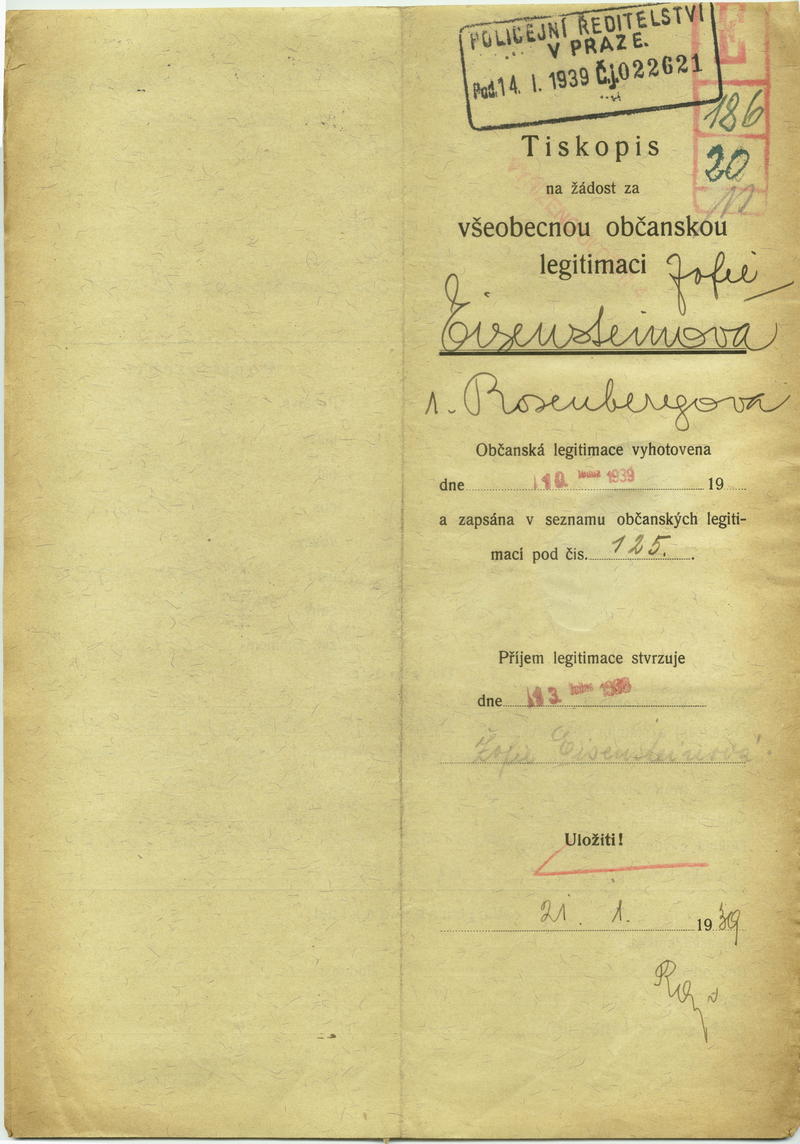 POLICEJNÍ ŘEDITELSTVÍ
V PRAZE.
Pod. 14. I. 1939 Č.j. 022621
186
20
Tiskopis
na žádost za
všeobecnou občanskou
legitimaci Žofie
Eisensteinova
r. Rosenbergova
Občanská legitimace vyhotovena
dne 19. 1939 19
a zapsána v seznamu občanských legiti-
mací pod čís. 125.
Příjem legitimace stvrzuje
dne
Žofie Eisensteinová
Uložiti!
21. 1. 1939